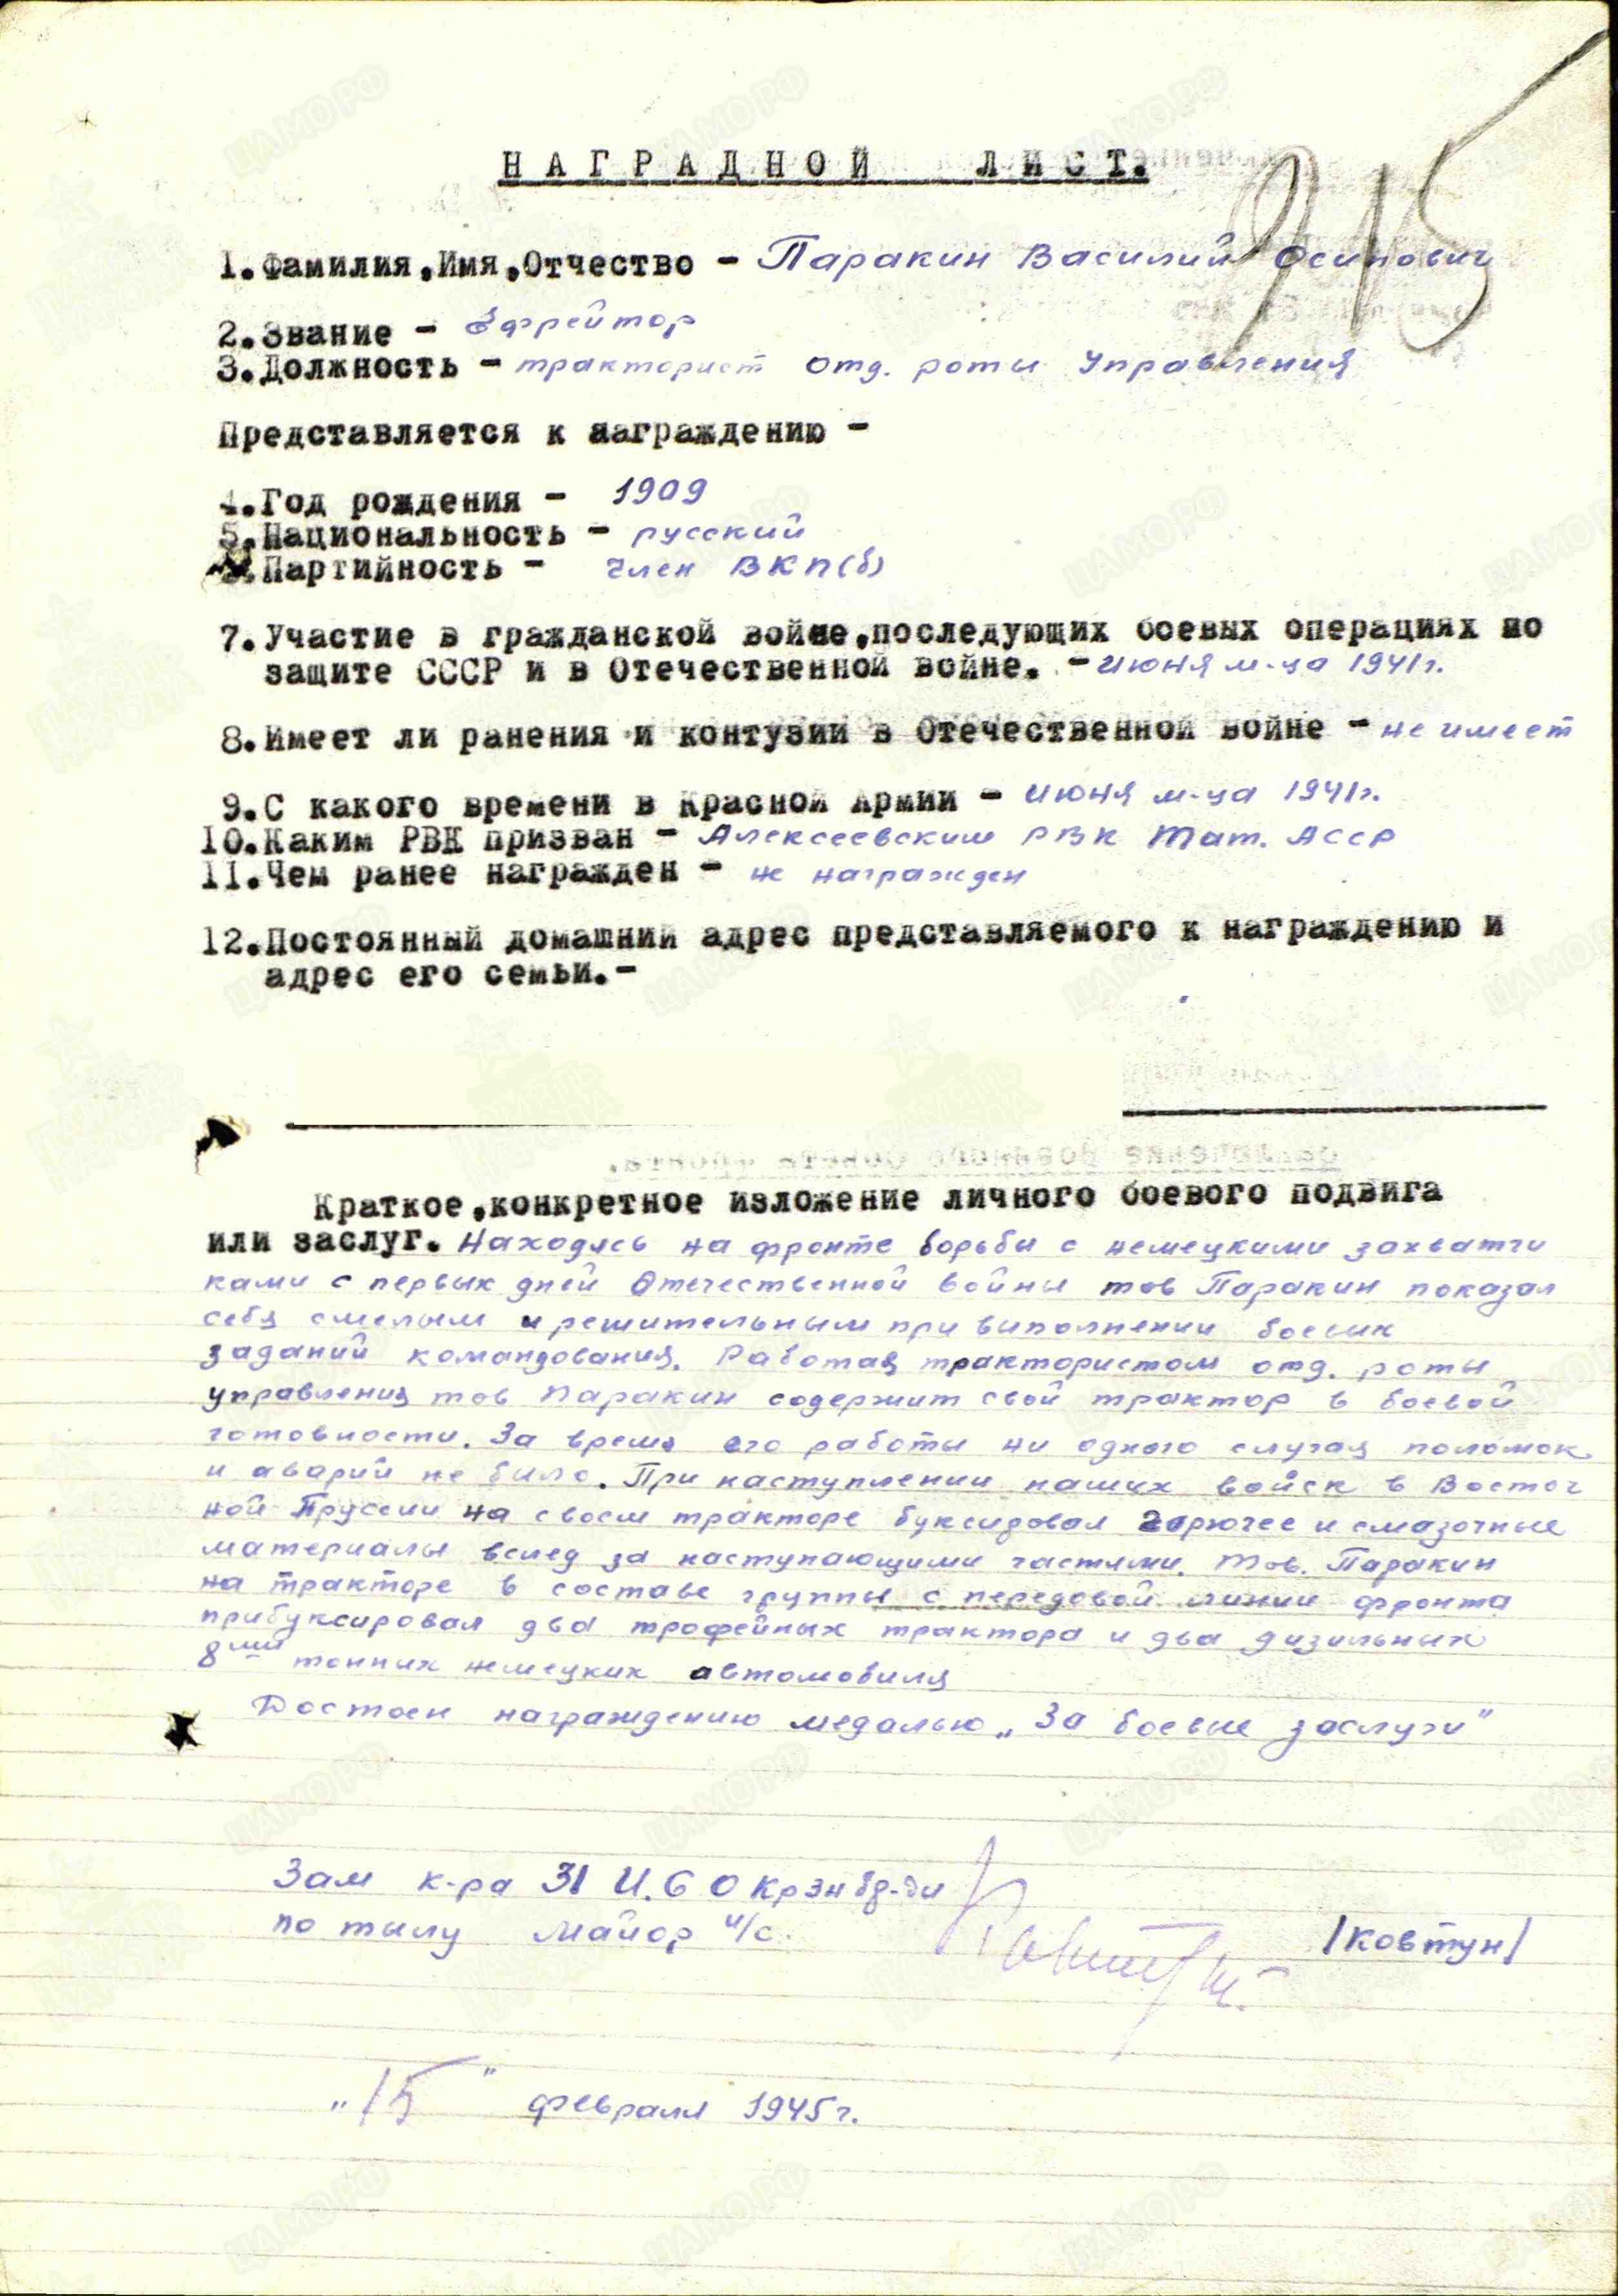 НАГРАДНОЙ ЛИСТ.
915
1. Фамилия, Имя, Отчество – Паракин Василий Осипович
2. Звание – Ефрейтор
3. Должность – тракторист отд. роты Управления
Представляется к награждению –
4. Год рождения – 1909
5. Национальность – русский
6. Партийность – Член ВКП(б)
7. Участие в гражданской войне, последующих боевых операциях по
защите СССР и в Отечественной войне. – июня м-ца 1941г.
8. Имеет ли ранения и контузии в Отечественной войне – не имеет
9. С какого времени в Красной Армии – июня м-ца 1941г.
10. Каким РВК призван – Алексеевским РВК Тат. АССР
11. Чем ранее награжден – не награжден
12. Постоянный домашний адрес представляемого к награждению и
адрес его семьи. –
Краткое, конкретное изложение личного боевого подвига
или заслуг. Находясь на фронте борьбы с немецкими захватчи
ками с первых дней Отечественной войны тов Паракин показал
себя смелым и решительным при выполнении боевых
заданий командования. Работая трактористом отд. роты
управления тов Паракин содержит свой трактор в боевой
готовности. За время его работы ни одного случая поломок
и аварий не было. При наступлении наших войск в Восточ
ной Пруссии на своем тракторе буксировал горючее и смазочные
материалы вслед за наступающими частями. Тов. Паракин
на тракторе в составе группы с передовой линии фронта
прибуксировал два трофейных трактора и два дизильных
8ми тонных немецких автомобиля
Достоен награждению медалью „За боевые заслуги"
Зам к-ра 31 И.С О Крзн бр-ды
по тылу майор и/с.
/Ковтун/
„15" февраля 1945г.